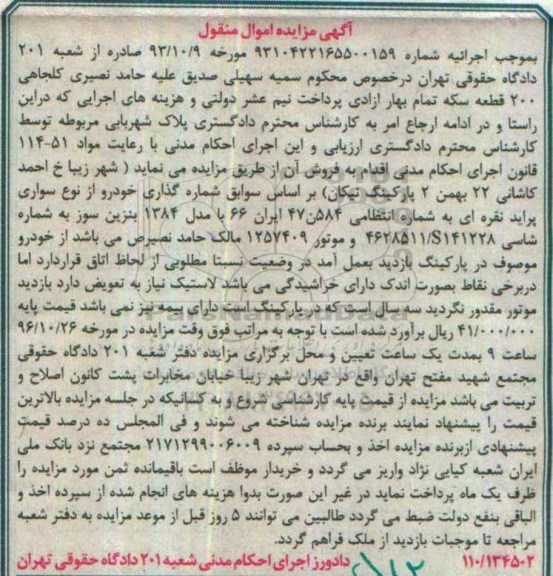 آگهی مزایده اموال منقول
بموجب اجرائیه شماره ۹۳۱۰۴۲۲۱۶۵۵۰۰۱۵۹ مورخه ۹۳/۱۰/۹ صادره از شعبه ۲۰۱
دادگاه حقوقی تهران درخصوص محکوم سمیه سهیلی صدیق علیه حامد نصیری کلجاهی
۲۰۰ قطعه سکه تمام بهار ازادی پرداخت نیم عشر دولتی و هزینه های اجرایی که دراین
راستا و در ادامه ارجاع امر به کارشناس محترم دادگستری پلاک شهربابی مربوطه توسط
کارشناس محترم دادگستری ارزیابی و این اجرای احکام مدنی با رعایت مواد ۵۱-۱۱۴
قانون اجرای احکام مدنی اقدام به فروش آن از طریق مزایده می نماید ( شهر زیبا خ احمد
کاشانی ۲۲ بهمن ۲ پارکینگ نیکان) بر اساس سوابق شماره گذاری خودرو از نوع سواری
پراید نقره ای به شماره انتظامی ۵۸۴ن۴۷ ایران ۶۶ با مدل ۱۳۸۴ بنزین سوز به شماره
شاسی ۴۶۲۸۵۱۱/S۱۴۱۲۲۸ و موتور ۱۲۵۷۴۰۹ مالک حامد نصیرص می باشد از خودرو
موصوف در پارکینگ بازدید بعمل آمد در وضعیت نسبتا مطلوبی از لحاظ اتاق قراردارد اما
دربرخی نقاط بصورت اندک دارای خراشیدگی می باشد لاستیک نیاز به تعویض دارد بازدید
موتور مقدور نگردید سه سال است که در پارکینگ است دارای بیمه نیز نمی باشد قیمت پایه
۴۱/۰۰۰/۰۰۰ ریال برآورد شده است با توجه به مراتب فوق وقت مزایده در مورخه ۹۶/۱۰/۲۶
ساعت ۹ بمدت یک ساعت تعیین و محل برگزاری مزایده دفتر شعبه ۲۰۱ دادگاه حقوقی
مجتمع شهید مفتح تهران واقع در تهران شهر زیبا خیابان مخابرات پشت کانون اصلاح و
تربیت می باشد مزایده از قیمت پایه کارشناسی شروع و به کسانیکه در جلسه مزایده بالاترین
قیمت را پیشنهاد نمایند برنده مزایده شناخته می شوند و فی المجلس ده درصد قیمت
پیشنهادی ازبرنده مزایده اخذ و بحساب سپرده ۲۱۷۱۲۹۹۰۰۶۰۰۹ مجتمع نزد بانک ملی
ایران شعبه کیایی نژاد واریز می گردد و خریدار موظف است باقیمانده ثمن مورد مزایده را
ظرف یک ماه پرداخت نماید در غیر این صورت بدوا هزینه های انجام شده از سپرده اخذ و
الباقی بنفع دولت ضبط می گردد طالبین می توانند ۵ روز قبل از موعد مزایده به دفتر شعبه
مراجعه تا موجبات بازدید از ملک فراهم گردد.
۱۱۰/۱۳۴۵۰۲ دادورز اجرای احکام مدنی شعبه ۲۰۱ دادگاه حقوقی تهران